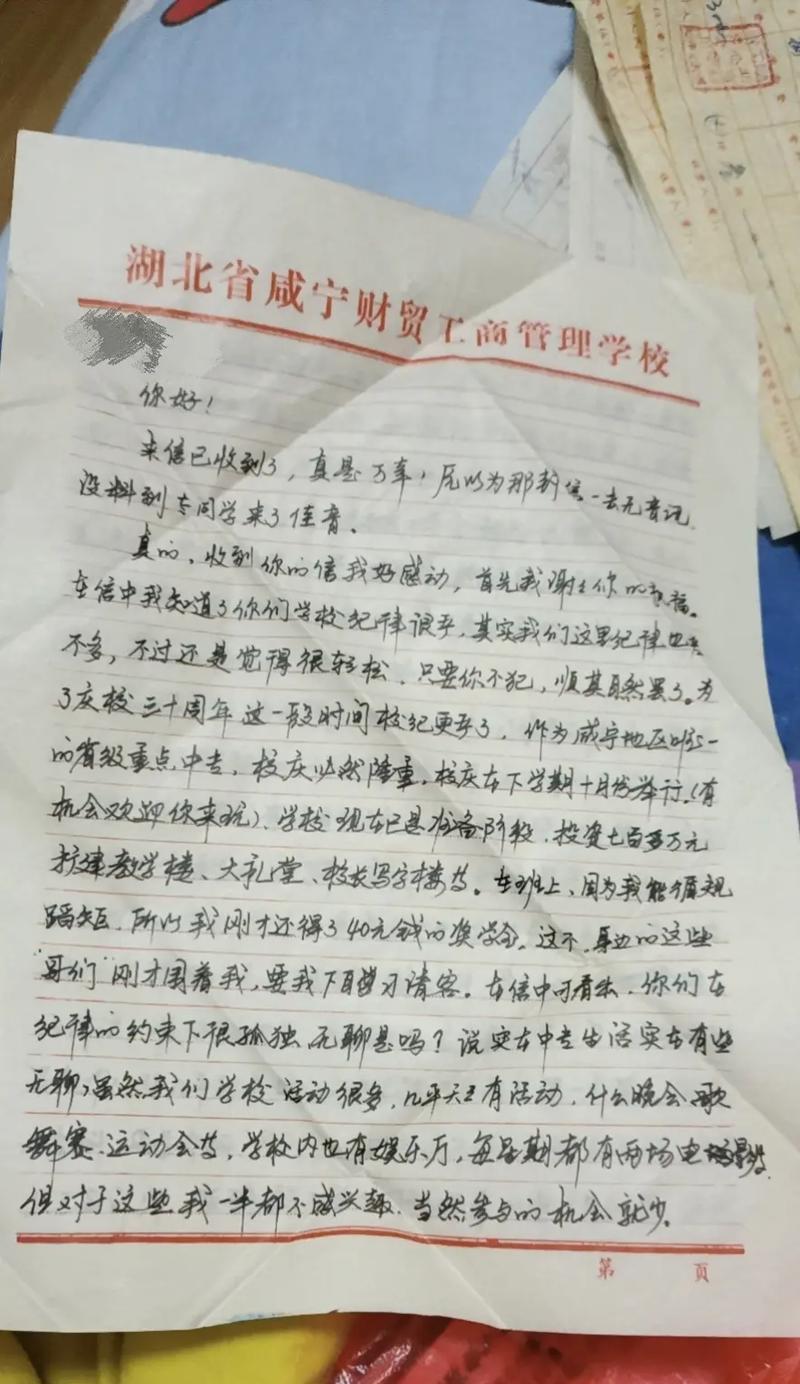 湖北省咸宁财贸工商管理学校
你好！
来信已收到了，真是万幸，原以为那封信一去无音讯
没料到老同学来了佳音。
真的，收到你的信我好感动，首先我谢谢你的祝福。
在信中我知道了你们学校纪律很严，其实我们这里纪律也差
不多，不过还是觉得很轻松，只要你不犯，顺其自然罢了。为
了庆校三十周年这一段时间校纪更严了，作为咸宁地区唯一
的省级重点中专，校庆必然隆重，校庆在下学期十月份举行。（有
机会欢迎你来玩）、学校现在已是准备阶段，投资七百多万元
扩建教学楼、大礼堂、校长写字楼等。在班上，因为我能循规
蹈矩，所以我刚才还得了40元钱的奖学金。这不，身边的这些
哥们刚才围着我，要我下自习请客。在信中可看出，你们在
纪律的约束下很孤独、无聊是吗？说实在中专生活实在有些
无聊，虽然我们学校活动很多，几乎天天有活动，什么晚会歌
舞赛、运动会等，学校内也有娱乐厅，每星期都有两场电影等
但对于这些我一半都不感兴趣，当然参与的机会就少。
第 页